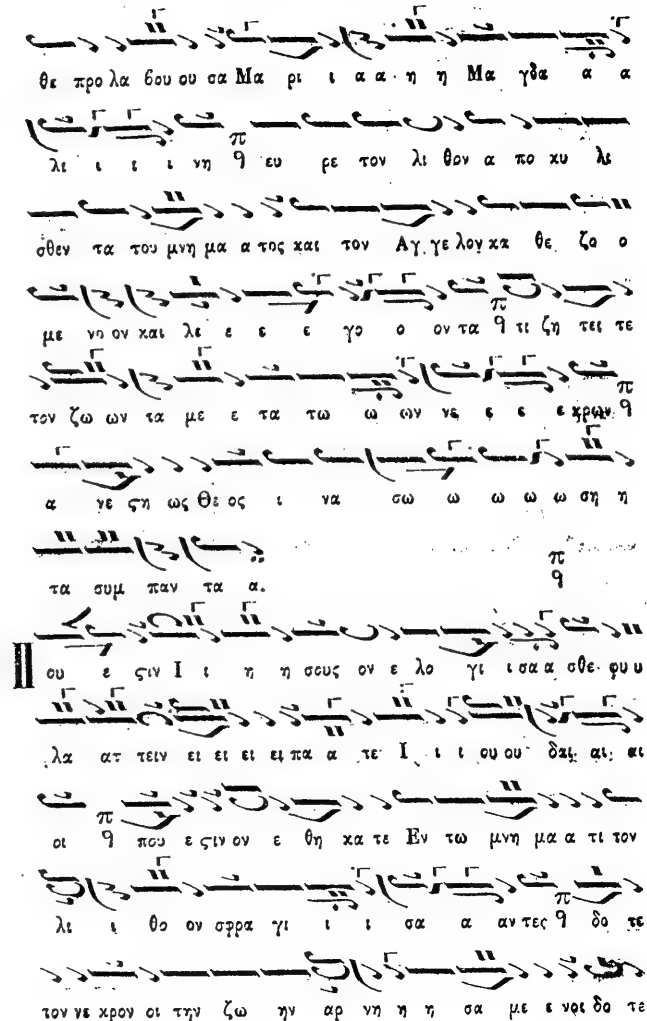 θε προ λα βου ου σα Μα ρι ι α α η η Μα γδα α α
λι ι ι ι νη ευ ρε τον λι θον α πο κυ λι
σθεν τα του μνη μα α τος και τον Αγ γε λον κα θε ζο ο
με νο ον και λε ε ε ε γο ο ον τα τι ζη τει τε
τον ζω ων τα με ε τα τω ω ων νε ε ε ε κρων
α νε ϛη ως Θε ος ι να σω ω ω ω ω ση η
τα συμ παν τα α.
Που ε ϛιν Ι ι η η σους ον ε λο γι ι σα α σθε φυ υ
λα ατ τειν ει ει ει ει πα α τε Ι ι ι ου ου δαι αι αι
οι που ε ϛιν ον ε θη κα τε Εν τω μνη μα α τι τον
λι ι θο ον σφρα γι ι ι σα α αν τες δο τε
τον νε κρον οι την ζω ην αρ νη η η σα με ε νοι δο τε